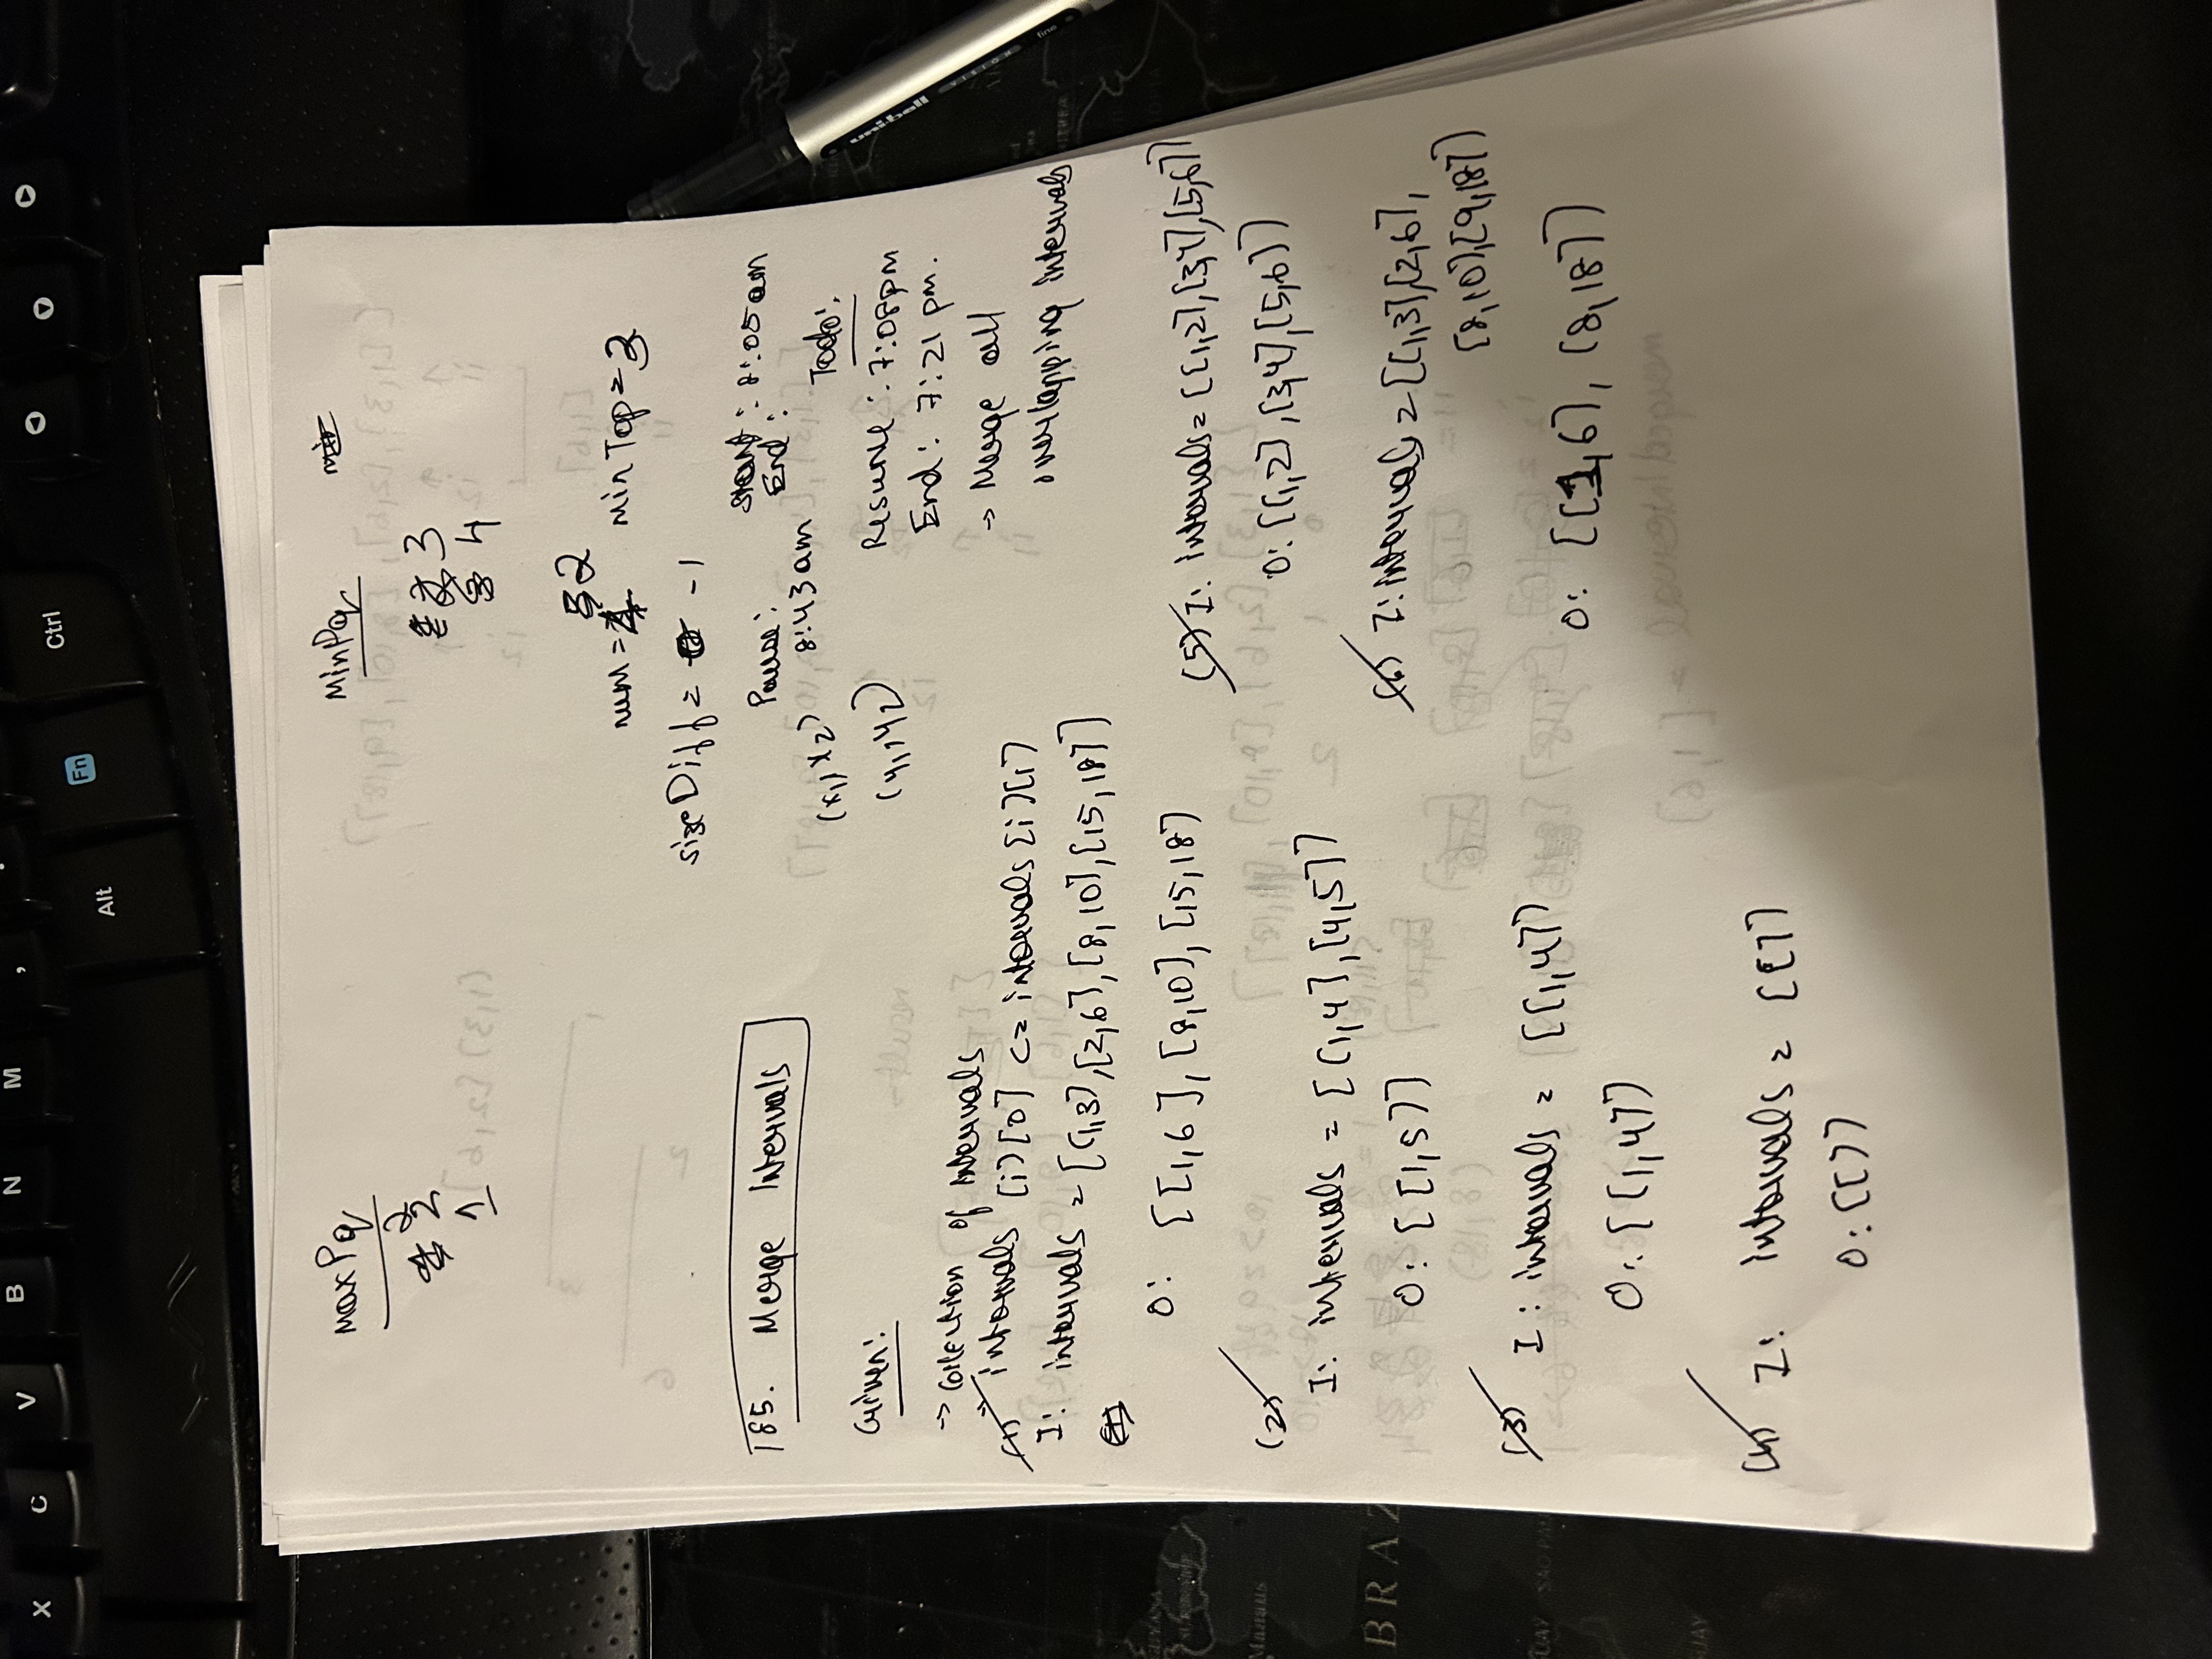 X C V B N M ,
Alt Fn Ctrl
maxPq
minPq
2
2
3
1
4
2
num =
minTop = 3
sizeDiff = -1
185. Merge Intervals
Pause:
8:43am
Start: 8:05am
End:
(x1, x2)
(y1, y2)
Todo:
Resume: 7:08pm
End: 7:21 pm.
→ Merge all
overlapping intervals
Given:
→ collection of intervals
→ intervals [i][0] <= intervals[i][1]
(1)
I: intervals = [[1,3],[2,6],[8,10],[15,18]]
O: [[1,6],[8,10],[15,18]
(2)
I: intervals = [[1,4],[4,5]]
O: [[1,5]]
(3) I: intervals = [[1,4]]
O: [[1,4]]
(4) I: intervals = [[]]
O: [[]]
(5) I: intervals = [[1,2],[3,4],[5,6]]
O: [[1,2],[3,4],[5,6]]
(6) I: intervals = [[1,3],[2,6],
[8,10],[9,18]]
O: [[1,6], [8,18]]
uniball
fine
BRAZ
Manaus
GUAY
SAO PA
GUAY